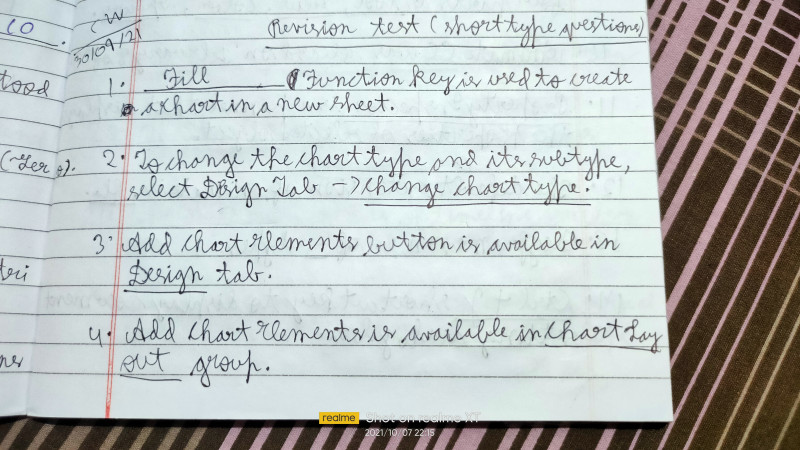 CO
CW
30/09/21
Revision test (short type questions)
tood
1. Fill Function key is used to create
a chart in a new sheet.
2. To change the chart type and its subtype,
select Design Tab → change chart type.
3. Add chart elements button is available in
Design tab.
4. Add chart elements is available in chart Lay
out group.
realme Shot on realme XT
2021/10/07 22:15